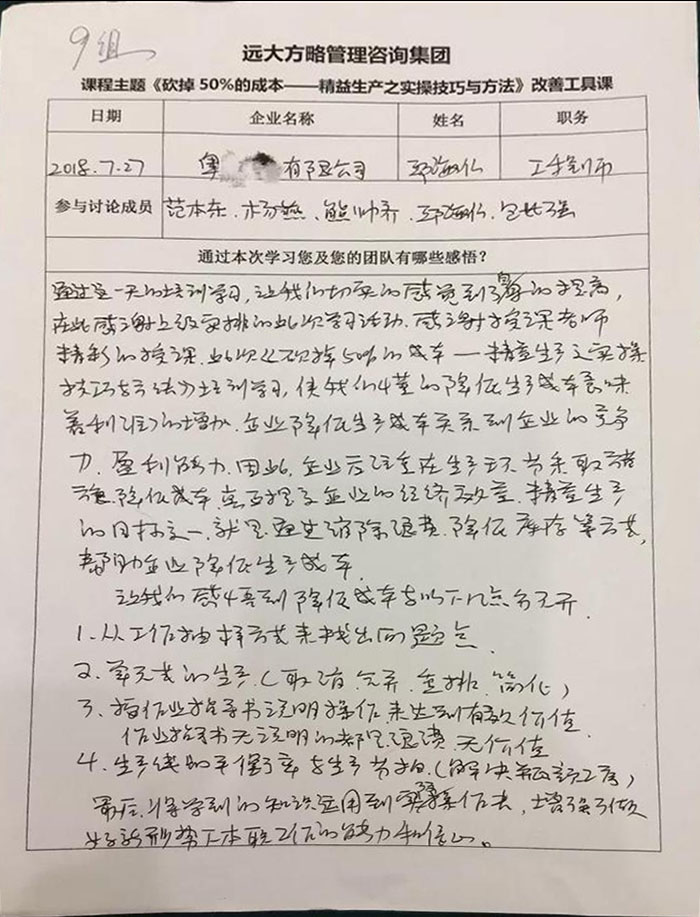 9组
远大方略管理咨询集团
课程主题《砍掉50%的成本——精益生产之实操技巧与方法》改善工具课
日期 企业名称 姓名 职务
2018.7.27 奥 有限公司 邓海仏 工程师
参与讨论成员 范本东、杨燕、熊帅齐、邓海仏、包长强
通过本次学习您及您的团队有哪些感悟?
通过这一天的培训学习,让我们切实的感觉到自身的提高,
在此感谢上级安排的此次学习活动.感谢授课老师
精彩的授课.此次《砍掉50%的成本—精益生产之实操
技巧与方法》培训学习,使我们懂的降低生产成本意味
着利润的增加.企业降低生产成本关系到企业的竞争
力、盈利能力.因此,企业应注重在生产环节采取措
施,降低成本,真正提高企业的经济效益.精益生产
的目标之一,就是通过缩除浪费.降低库存等方式,
帮助企业降低生产成本.
让我们感悟到降低成本与以下几点分不开.
1.从工作抽样方式来找出问题点.
2.单元式的生产.(取消.合并.重排.简化)
3.按作业指导书说明操作来达到有效价值.
作业指导书无说明的都是浪费.无价值
4.生产线的平衡率与生产节拍.(解决瓶颈工序)
最后,将学到的知识运用到实际操作去,增强了做
好新形势下本职工作的能力和信心。